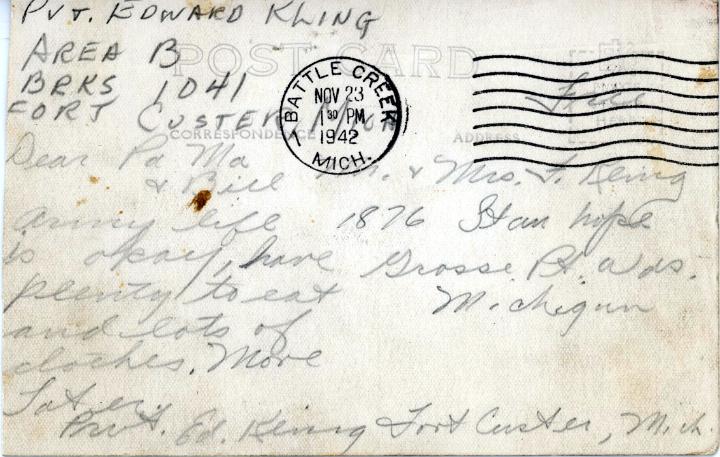 PVT. EDWARD KLING
AREA B
BRKS 1041
FORT CUSTER MICH
POST CARD
BATTLE CREEK
NOV 23
1 30 PM
1942
MICH.
1
Free
CORRESPONDENCE
ADDRESS
Dear Pa Ma
& Bill
Army life
is okay, have
plenty to eat
and lots of
clothes. More
Later.
Pvt. Ed. Kling Fort Custer, Mich.
Mr. & Mrs. F. Kling
1876 Stanhope
Grosse Pt. Wds.
Michigan